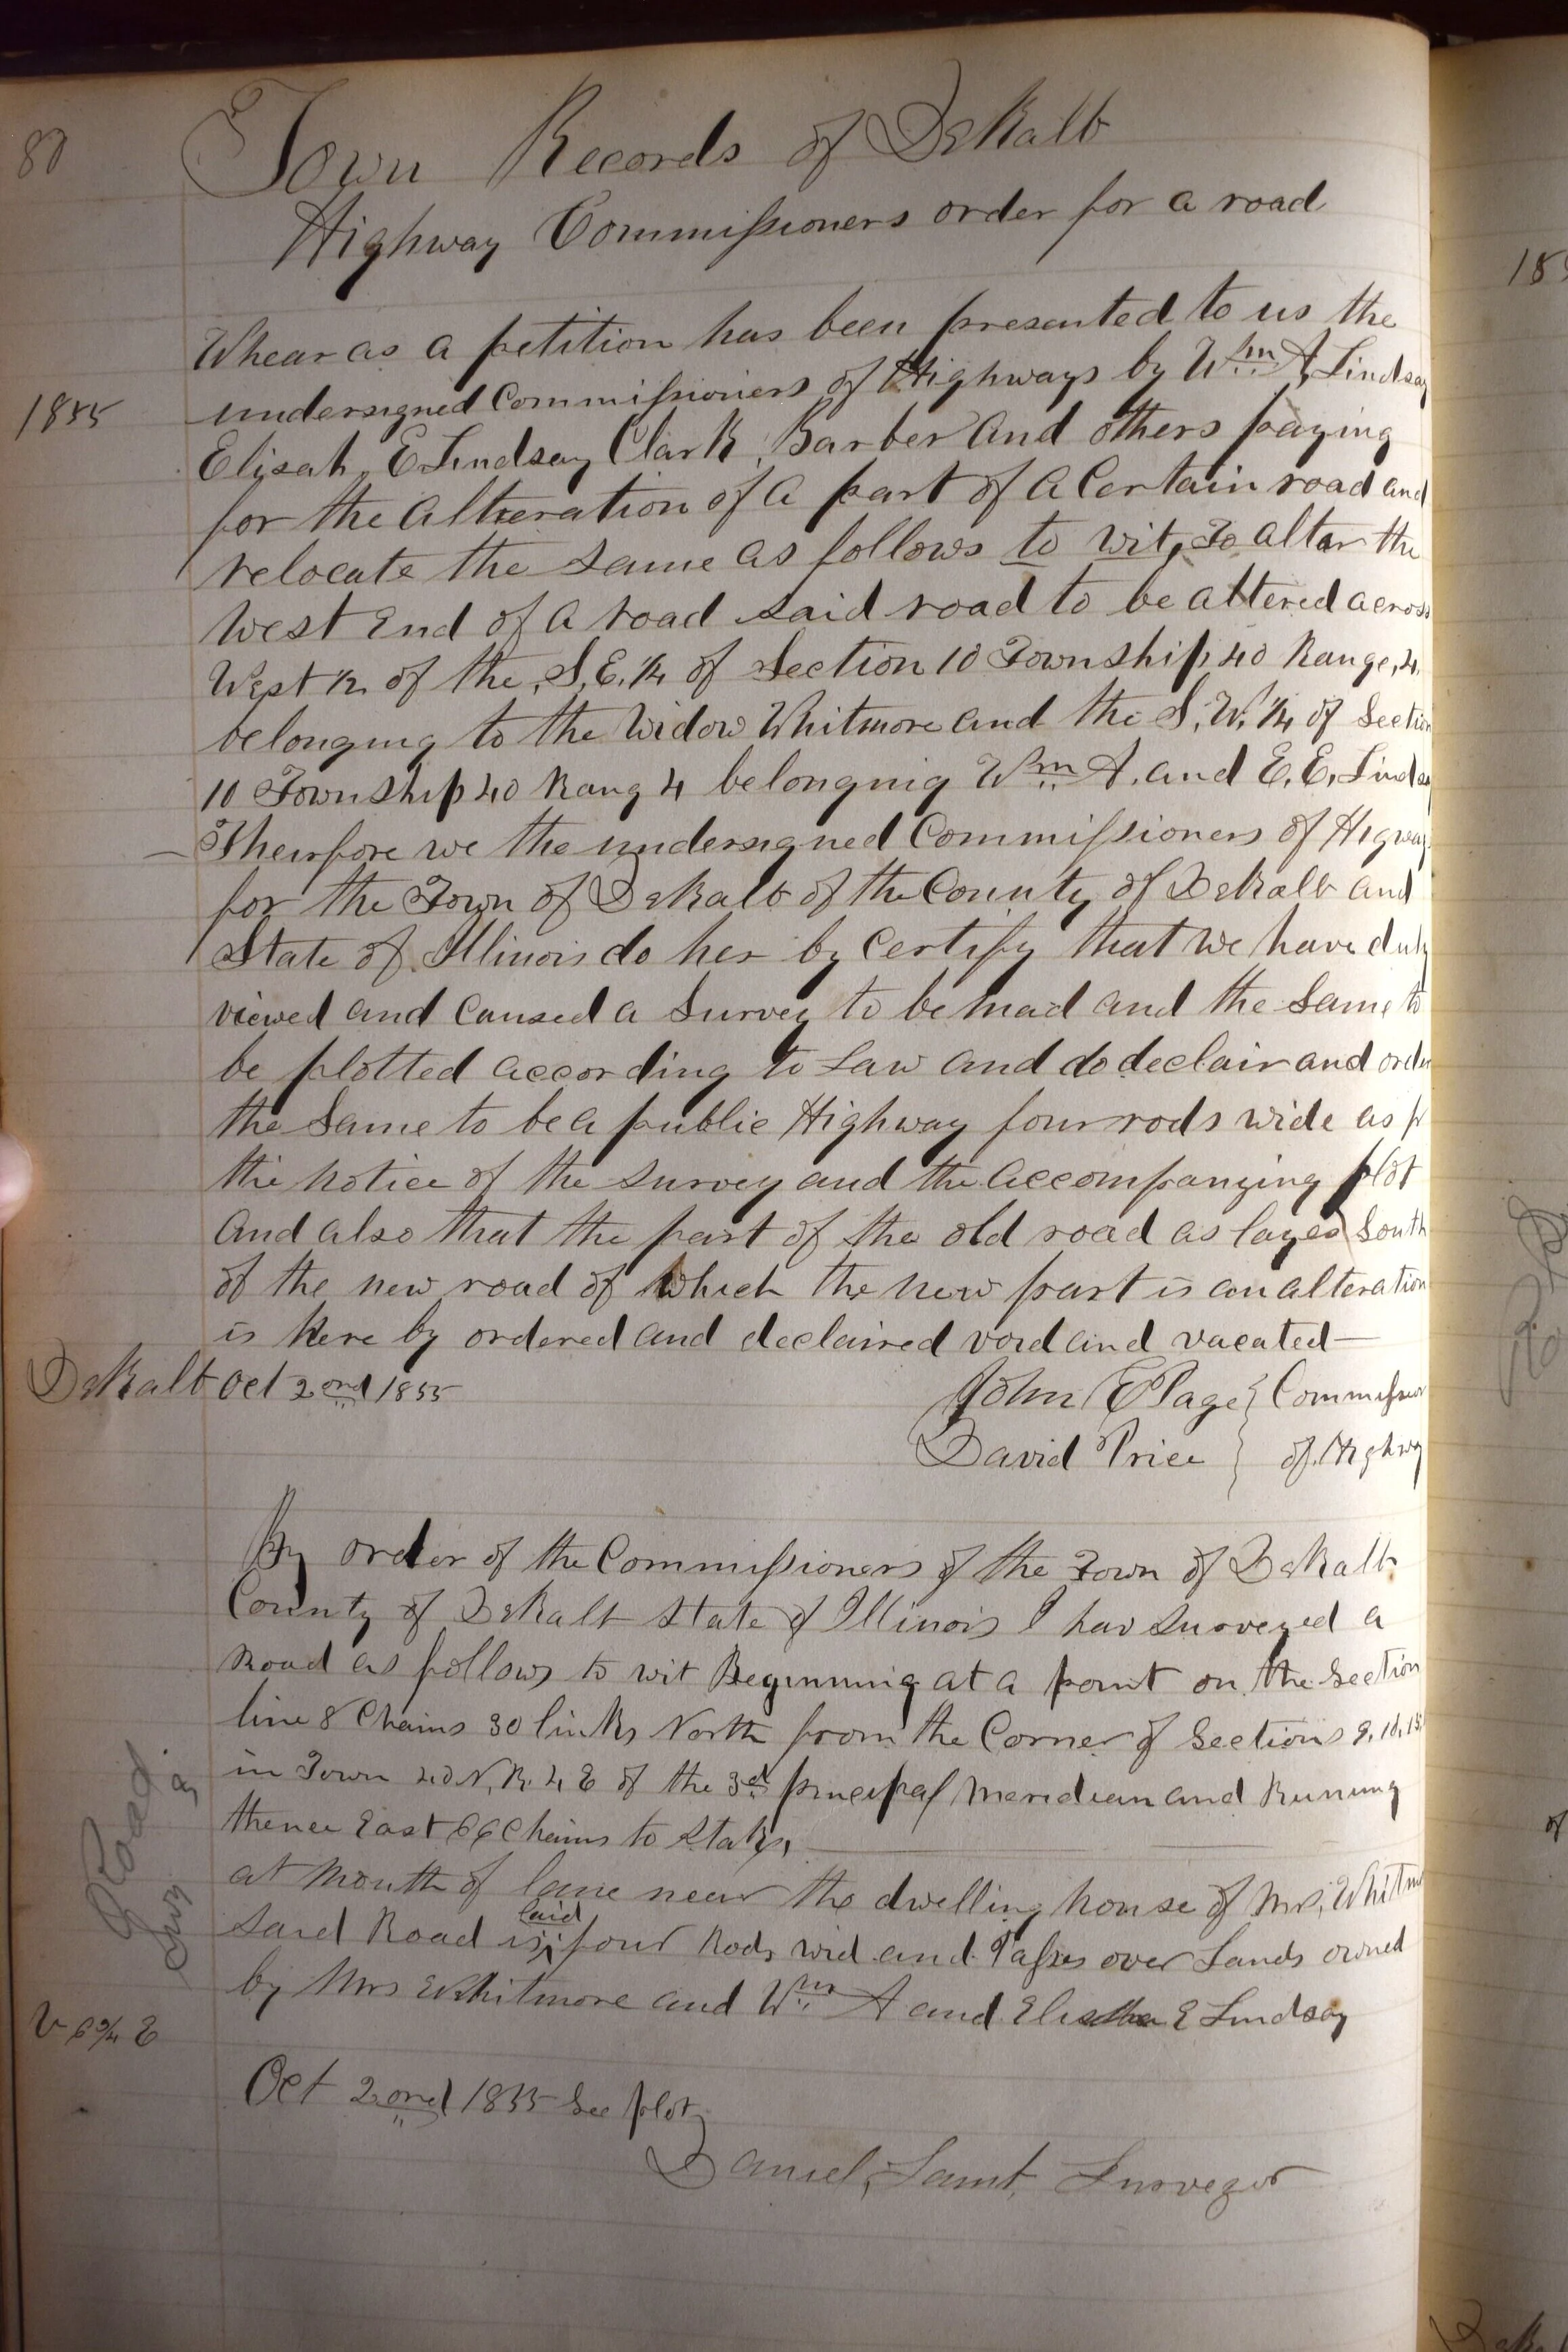 80
Town Records of DeKalb
Highway Commissioners order for a road
Whearas a petition has been presented to us the
1855
undersigned Commissioners of Highways by Wm A, Lindsay
Elisah, E Lindsay Clark, Barber and others paying
for the alteration of a part of a Certain road and
relocate the Same as follows to wit, To altar the
West End of a road said road to be altered across
West 1/2 of the, S, E, 1/4 of Section 10 Township 40 Range, 4,
belonging to the Widow Whitmore and the S, W, 1/4 of Section
10 Township 40 Rang 4 belongnig Wm A. and E. E, Lindsay
Theirfore we the undersigned Commissioners of Higways
for the Town of DeKalb of the County of DeKalb and
State of Illinois do her by Certify that we have duly
viewed and Caused a Survey to be mad and the Same to
be plotted according to Law and do declair and order
the Same to be a public Highway four rods wide as pr
the notice of the survey and the accompanying plot
and also that the part of the old road as layes South
of the new road of which the new part is an alteration
is here by ordered and declaired void and vacated—
DeKalb Oct 2ond 1855
John E Page } Commissioners
David Price } of Highway
By order of the Commissioners of the Town of DeKalb
County of DeKalb State of Illinois I hav Surveyed a
Road as follows to wit Beginning at a point on the Section
line 8 Chains 30 links North from the Corner of Sections 9, 10, 15
in Town 40 N, R. 4 E of the 3d princepal Meridian and Runing
thence East 66 Chains to Stake,
at Mouth of lane near the dwelling house of Mrs, Whitmore
laid
Said Road is, four Rods wid and Passes over Lands owned
by Mrs Whitmore and Wm A and Elisha E Lindsay
Road
Oct 2ond 1855 See plot
Daniel, Lamb, Surveyor